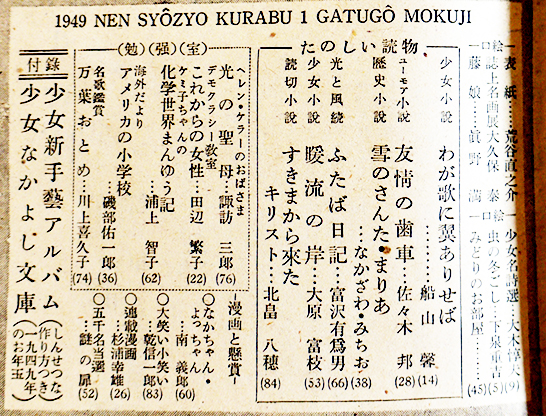 1949 NEN SYÔZYO KURABU 1 GATUGÔ MOKUJI
―表紙……荒谷直之介―
口絵 誌上名画展大久保 泰
―藤娘……眞野 満―
口絵
少女名詩選…大木惇夫(9)
虫の冬ごし…下泉重吉(5)
みどりのお部屋………(45)
たのしい読物
少女小説 わが歌に翼ありせば………船山 馨(14)
ユーモア小説 友情の歯車…佐々木 邦(28)
歴史小説 雪のさんた・まりあ……なかざわ・みちお(38)
光と風続 ふたば日記…富沢有爲男(66)
少女小説 暖流の岸…大原 富枝(53)
読切小説 すきまから來たキリスト…北畠 八穂(84)
(勉)(強)(室)
ヘレン・ケラーのおばさま
光の聖母…諏訪 三郎(76)
デモクラシー教室
これからの女性…田辺 繁子(22)
ケミ子ちゃんの
化学世界まんゆう記……浦上 智子(62)
海外だより
アメリカの小学校……磯部佑一郎(36)
名歌鑑賞
万葉おとめ…川上喜久子(74)
―漫画と懸賞―
○なかちゃん・よっちゃん……南 義郎(60)
○大笑い小笑い……乾信一郎(83)
○連載漫画…杉浦幸雄(26)
○五千名当選……謎の扉(52)
付錄
少女新手藝アルバム(しんせつな作り方つき)
少女なかよし文庫(一九四九年のお年玉)